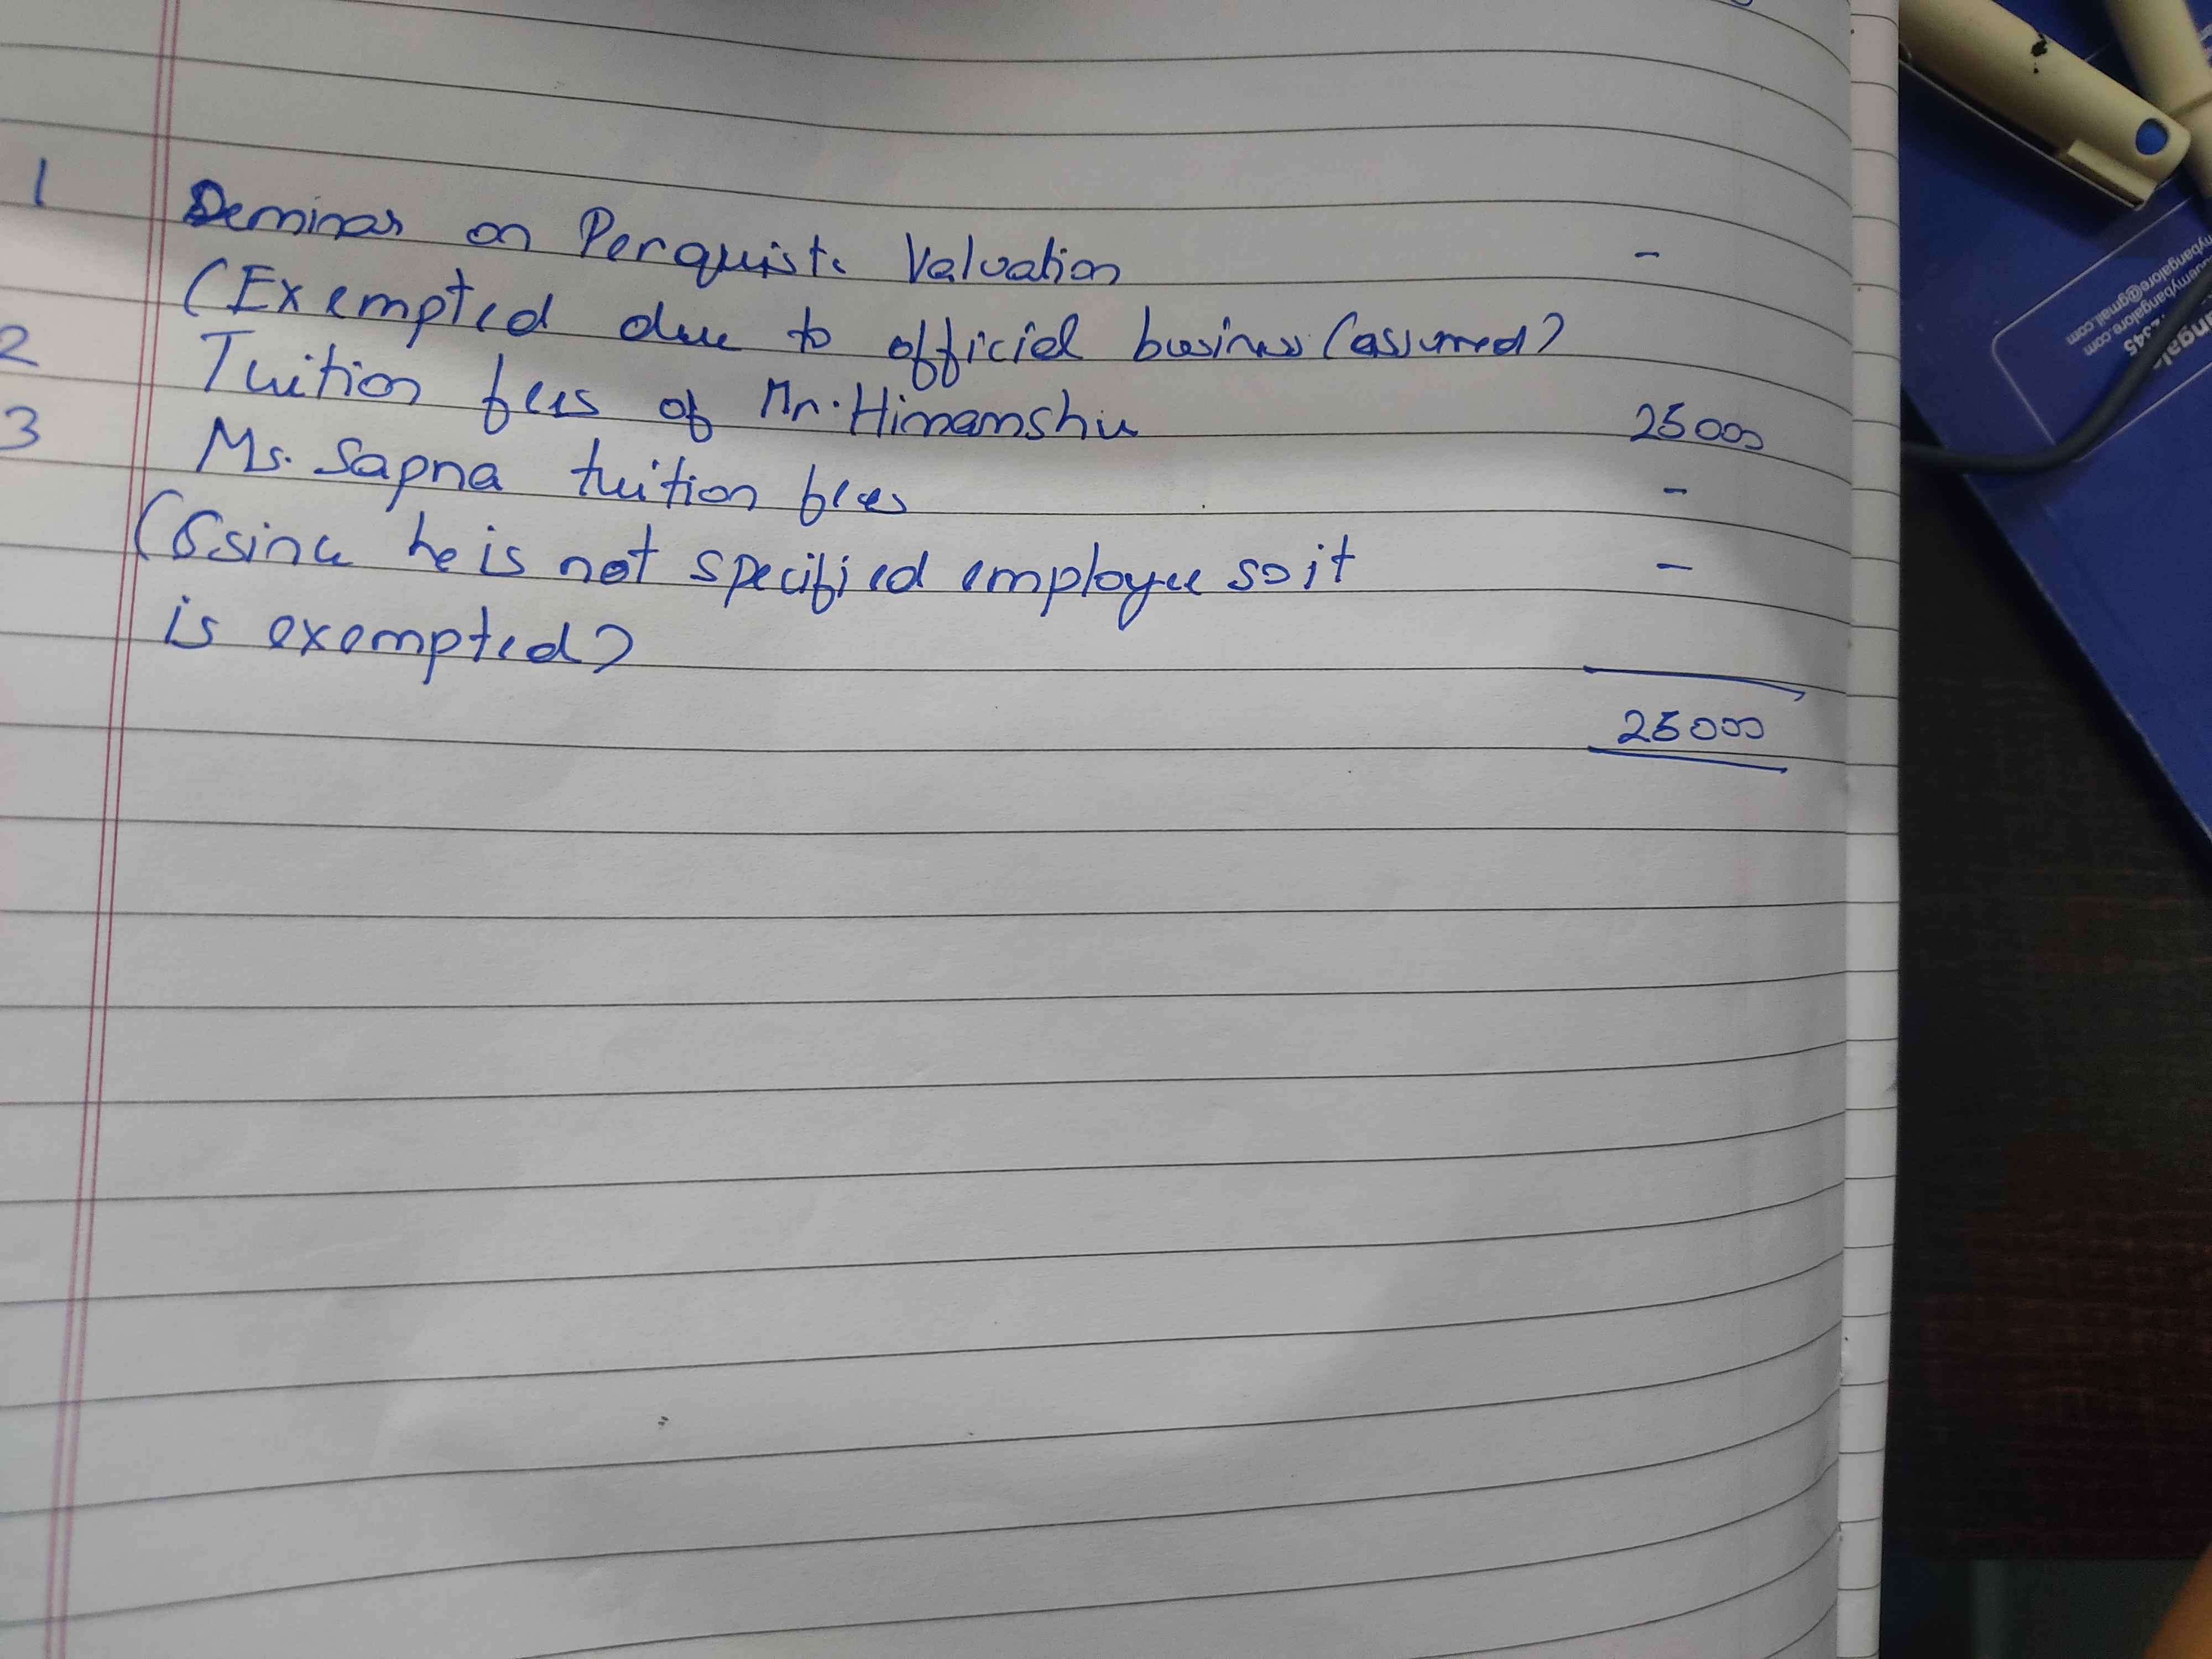 1 Seminar on Perquisite Valuation -
(Exempted due to official business (assumed)
2 Tuition fees of Mr. Himanshu 25000
3 Ms. Sapna tuition fees -
(Ssince he is not specified employee so it -
is exempted)
25000
mybangalore@gmail.com